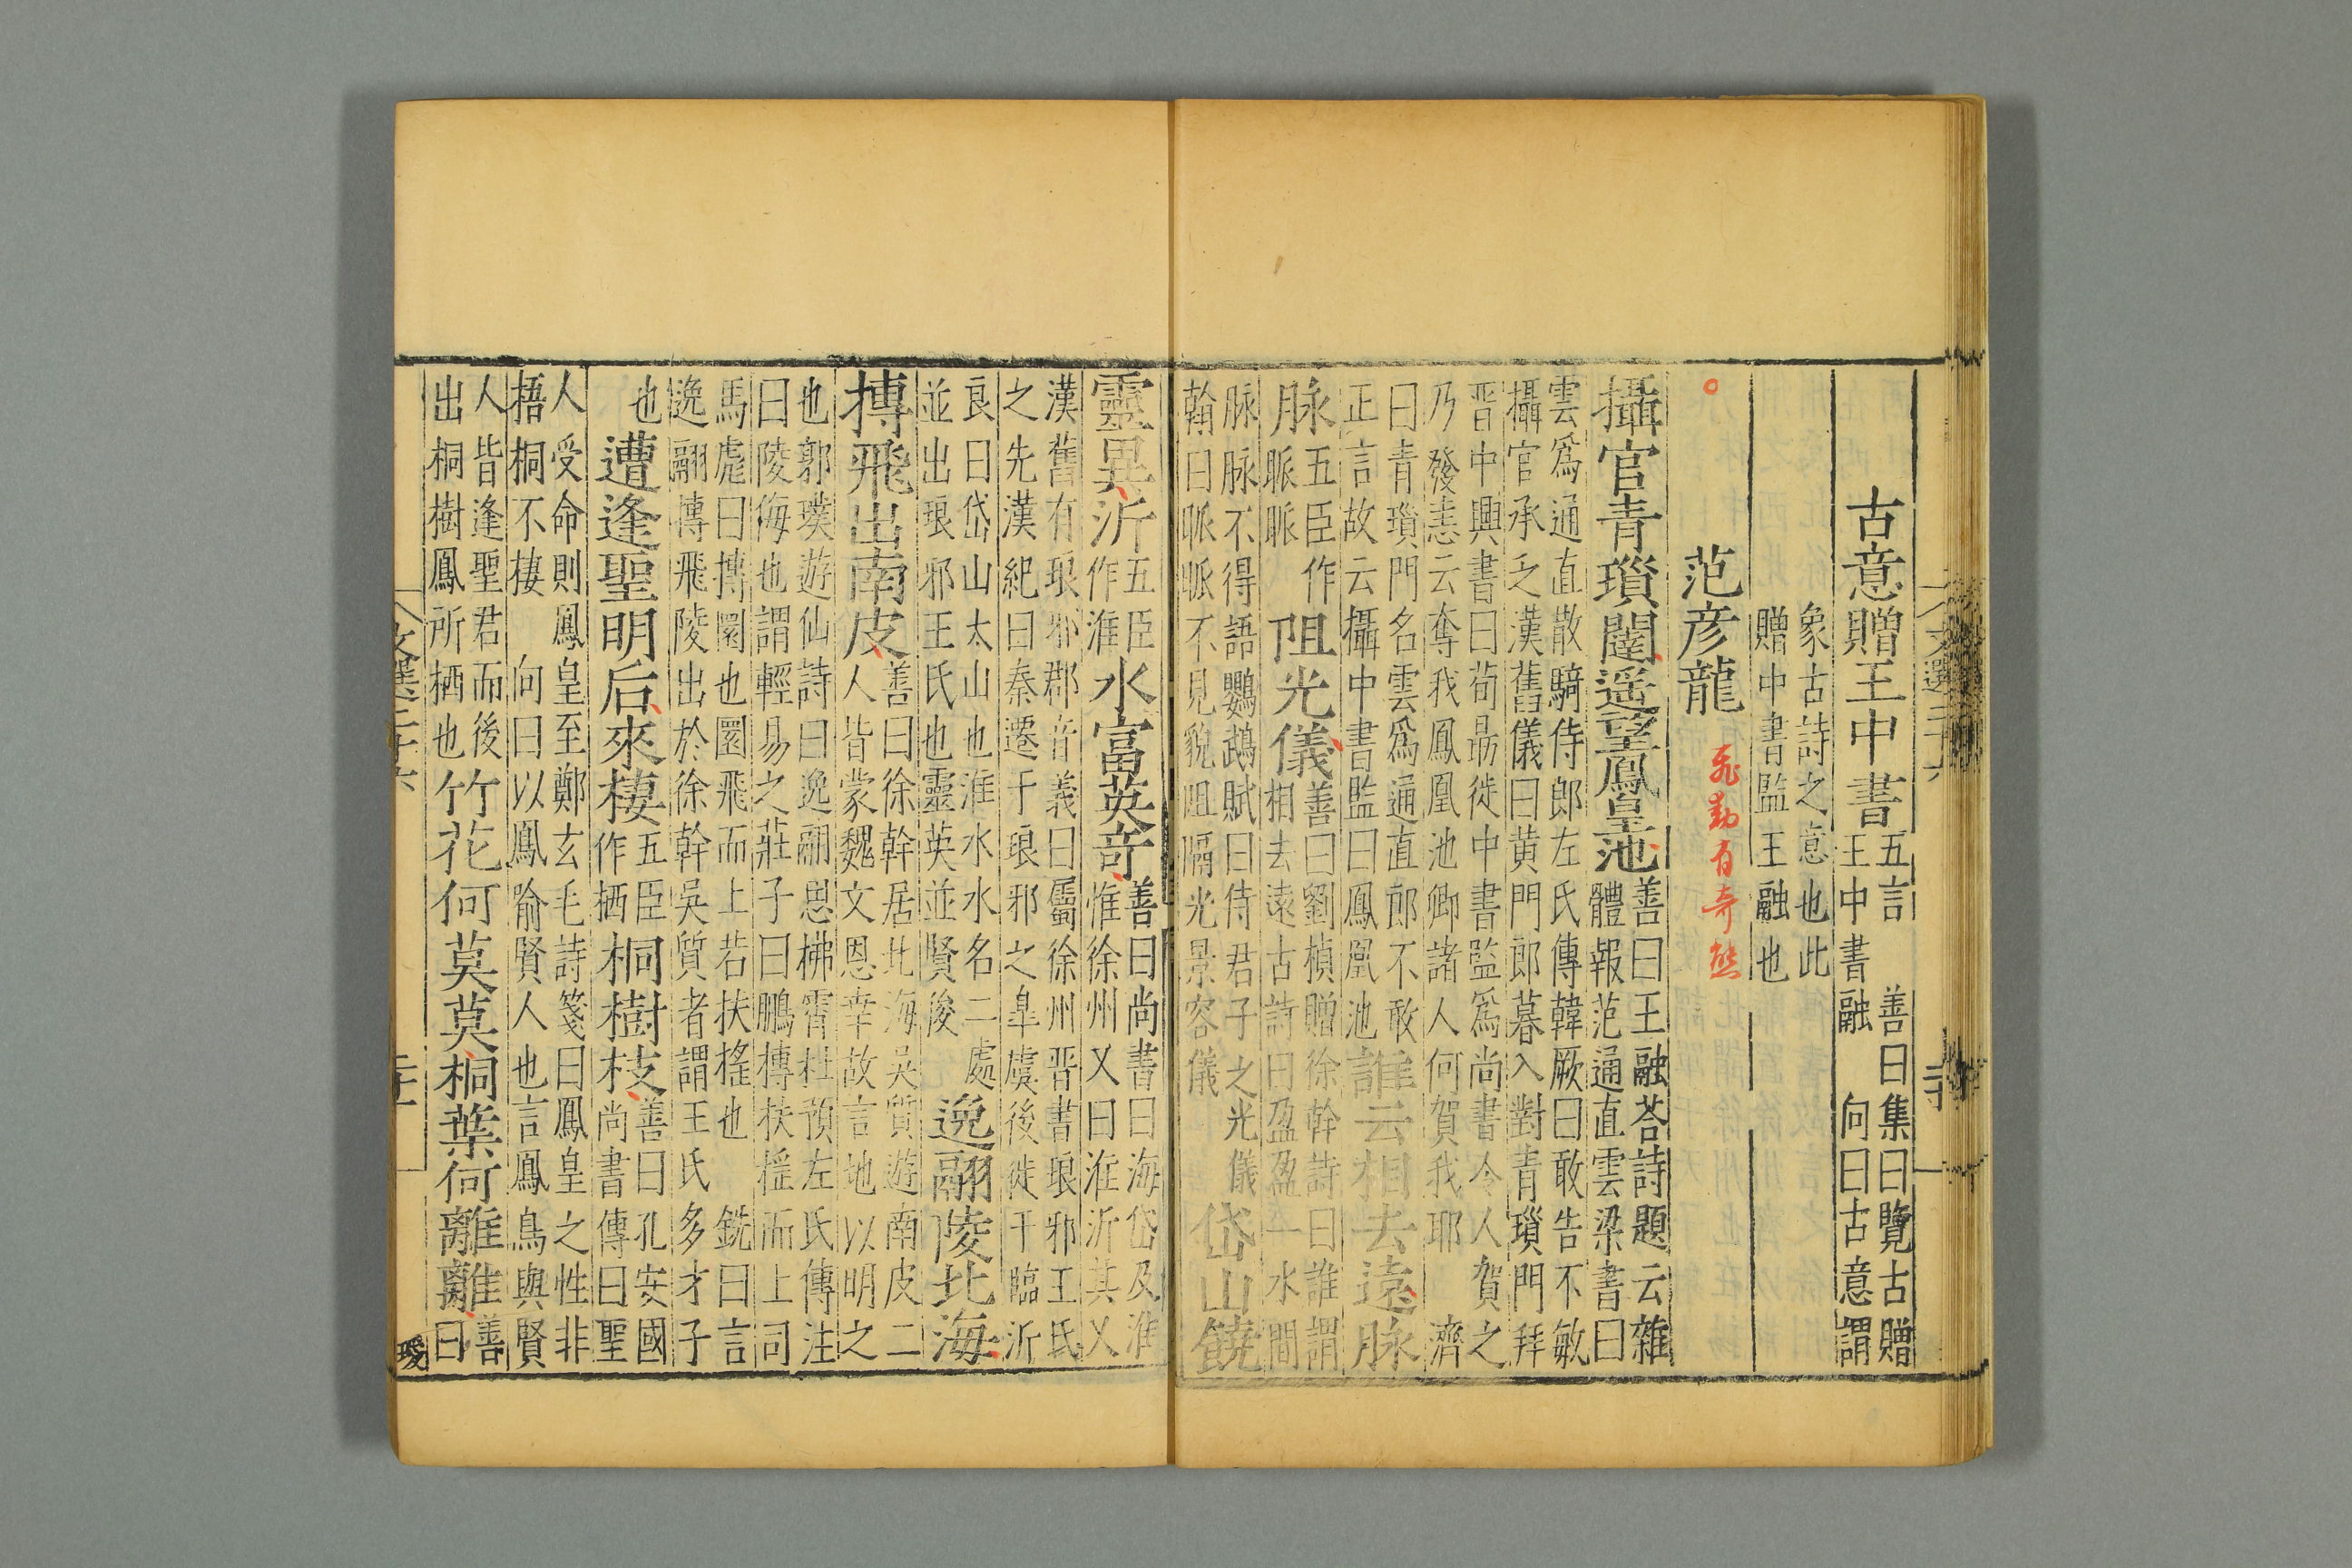 古意贈王中書五言 善曰集曰覽古贈
王中書融 向曰古意謂
象古詩之意也此
贈中書監王融也
范彦龍
攝官青瑣闥遥望鳳皇池善曰王融荅詩題云雜
體報范通直雲梁書曰
雲爲通直散騎侍郎左氏傳韓厥曰敢告不敏
攝官承乏漢舊儀曰黄門郎暮入對青瑣門拜
晋中興書曰荀勗徙中書監爲尚書令人賀之
乃發恚云奪我鳳凰池卿諸人何賀我耶 濟
曰青瑣門名雲爲通直郎不敢
正言故云攝中書監曰鳳凰池誰云相去遠脉
脉五臣作
脈脈阻光儀善曰劉楨贈徐幹詩曰誰謂
相去遠古詩曰盈盈一水間
脉脉不得語鸚鵡賦曰侍君子之光儀
翰曰脈脈不見貌阻隔光景容儀岱山饒
靈異沂五臣
作淮水富英竒善曰尚書曰海岱及淮
惟徐州又曰淮沂其乂
漢舊有琅邪郡音義曰屬徐州晋書琅邪王氏
之先漢紀曰秦遷于琅邪之皐虞後徙于臨沂
良曰岱山太山也淮水水名二處
並出琅邪王氏也靈英並賢後逸翮陵北海
搏飛出南皮善曰徐幹居北海吴質遊南皮二
人皆蒙魏文恩幸故言地以明之
也郭璞遊仙詩曰逸翮思拂霄杜預左氏傳注
曰陵侮也謂輕易之莊子曰鵬搏扶揺而上司
馬彪曰摶圜也圜飛而上若扶揺也 銑曰言
逸翮摶飛陵出於徐幹吴質者謂王氏多才子
也遭逢聖明后來棲五臣
作栖桐樹枝善曰孔安國
尚書傳曰聖
人受命則鳳皇至鄭玄毛詩箋曰鳳皇之性非
捂桐不棲 向曰以鳳喻賢人也言鳳鳥與賢
人皆逢聖君而後
出桐樹鳳所栖也竹花何莫莫桐葉何離離善
曰